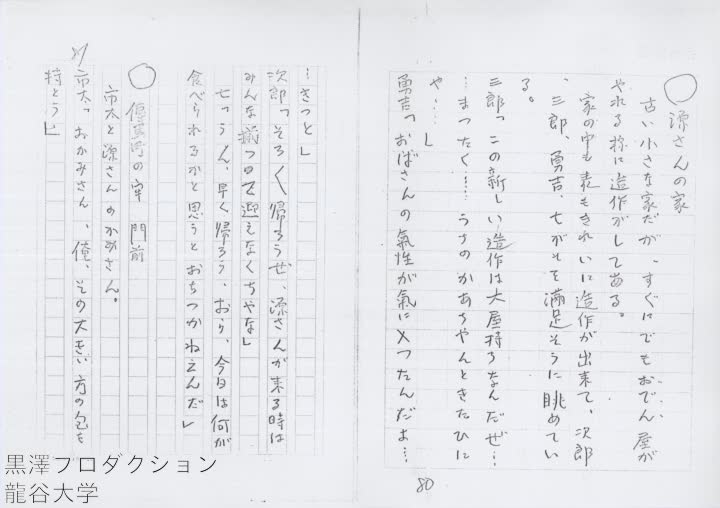 ○源さんの家
古い小さな家だが、すぐにでもおでん屋が
やれる様に造作がしてある。
家の中も表もきれいに造作が出来て、次郎
、三郎、勇吉、七がそれを満足そうに眺めてい
る。
三郎「この新しい造作は大屋持ちなんだぜ…
…まったく……うちのかあちゃんときたひに
や……」
勇吉「おばさんの氣性が氣に入ったんだよ…
80
…きっと」
次郎「そろ〳〵帰ろうぜ、源さんが来る時は
みんな揃って迎えなくちゃな」
七「うん、早く帰ろう、おら、今日は何が
食べられるかと思うとおちつかねえんだ」
○傳馬町の牢 門前
市太と源さんのかみさん。
市太「おかみさん、俺、その大きい方の包を
持とう」
81
黒澤プロダクション
龍谷大学